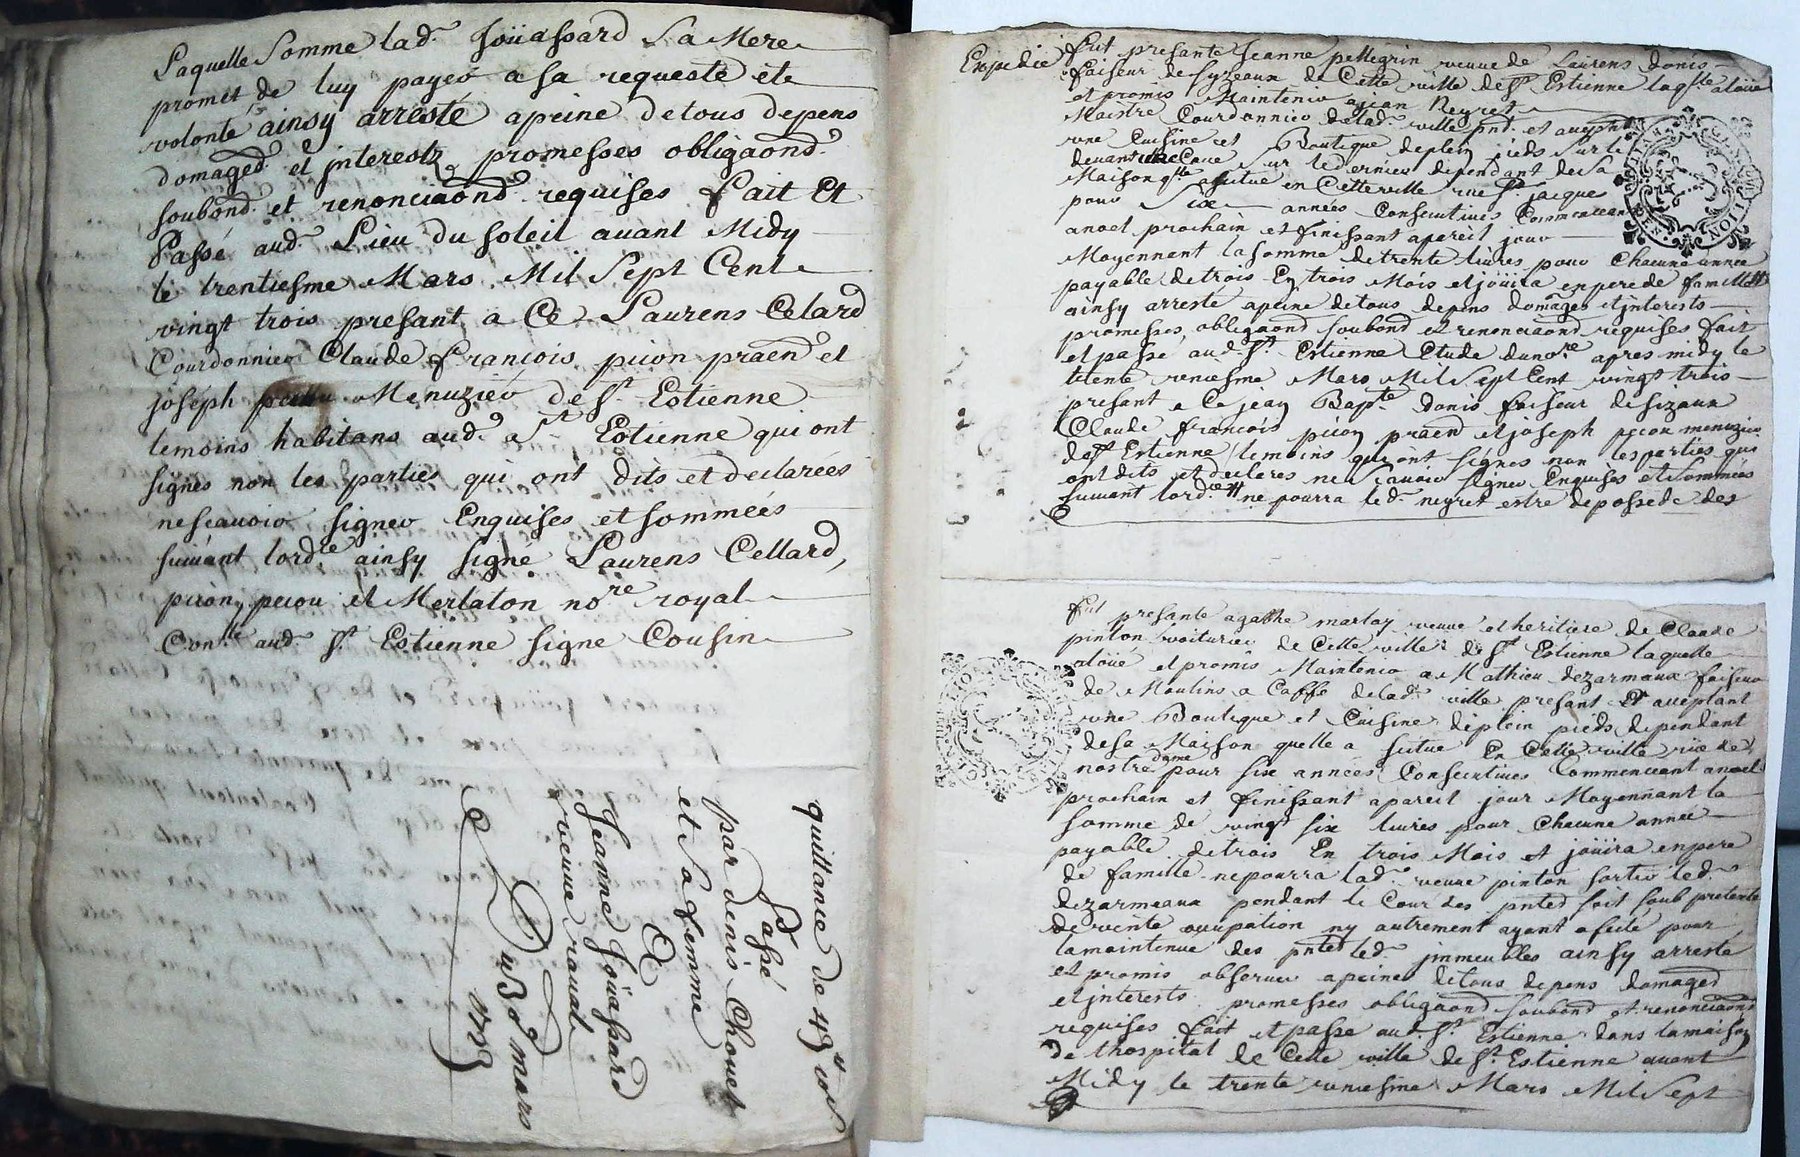 Laquelle Somme lad.e Joüassard Sa Mere
promet de luy payer a sa requeste et
volonté ainsy arresté apeine detous depens
domaged et jnterestz promesses obligaond
soubond et renonciaond requises fait Et
Passé aud. Lieu du soleil auant Midy
le trentiesme Mars Mil Sept Cent
vingt trois presant a Ce Laurens Celard
Courdonnier Claude françois picon praen et
joseph Menuzier de St Estienne
temoins habitans aud. St Estienne qui ont
signés non les parties qui ont dits et declarées
ne scauoir signer Enquises et sommées
suiuant lordce ainsy signé Laurens Cellard,
picon, pecou et Merlaton nore royal
Conlle aud. St Estienne signe Cousin
quittance de
Passé
par denis Chouet
et Sa femme
A
Jeanne Joüassard
veuue
Du 30 mars
1723
Expedié fut presante Jeanne pellegrin veuue de Laurens donis
faiseur de syzeaux de Cette ville de St Estienne laqlle a loüé
et promis Maintenir a jean Neyret
Maistre Courdonnier delad. ville pnt. et
une Cuisine et Boutique deplein pieds Sur le
deuant Caue Sur le dernier dependant de Sa
Maison qlle a scitue en Cette ville rue St jacques
pour Six années Consecutiues Commenceant
anoel prochain et finissant apareil jour
Moyennent la somme de trente liures pour Chacune année
payable de trois En trois Mois et joüira en pere de famille
ainsy arresté apeine detous depens domages et jnterests
promesses obligaond soubond et renonciaond requises fait
et passé aud. St Estienne Etude du nore apres midy le
trente uniesme Mars Mil Sept Cent vingt trois
presant a Ce jean Bapte donis faiseur desizaux
Claude francois picon praen et joseph pecou menuzier
de St Estienne temoins qui ont signés non les parties qui
ont dits et declares ne scauoir signer Enquises et sommées
suiuant lordce # ne pourra led. neyret estre depossedé des
fut presante agathe marlay veuue et heritiere de Claude
pinton voiturier de Cette ville de St Estienne laquelle
a loüé et promis Maintenir a Mathieu dezarmaux faiseur
de Moulins a Caffé delad. ville presant Et aceptant
une Boutique et Cuisine deplein pieds dependant
desa Maison quelle a scitue En Cette ville rüe de
nostre dame pour six années Consecutiues Commenceant anoel
prochain et finissant apareil jour Moyennant la
somme de vingt six liures pour Chacune année
payable de trois En trois Mois et joüira en pere
de famille ne pourra lad. veuue pinton sortir led.
dezarmeaux pendant le Cour des pnted soit soub pretexte
de vente ocupation ny autrement ayant afecté pour
lamaintenue des pnted led. jmmeubles ainsy arresté
et promis obseruer apeine detous depens domaged
et jnterests promesses obligaond soubond et renonciaond
requises fait et passé aud. St Estienne dans lamaison
de lhospital de Cette ville de St Estienne auant
Midy le trente uniesme Mars Mil Sept